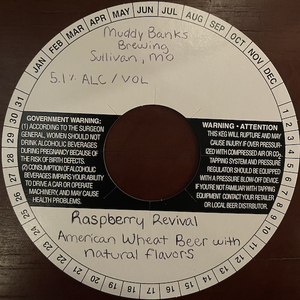 JAN FEB MAR APR MAY JUN JUL AUG SEP OCT NOV DEC
Muddy Banks
Brewing
Sullivan, MO
5.1% ALC / VOL
GOVERNMENT WARNING:
(1) ACCORDING TO THE SURGEON
GENERAL, WOMEN SHOULD NOT
DRINK ALCOHOLIC BEVERAGES
DURING PREGNANCY BECAUSE OF
THE RISK OF BIRTH DEFECTS.
(2) CONSUMPTION OF ALCOHOLIC
BEVERAGES IMPAIRS YOUR ABILITY
TO DRIVE A CAR OR OPERATE
MACHINERY, AND MAY CAUSE
HEALTH PROBLEMS.
WARNING • ATTENTION
THIS KEG WILL RUPTURE AND MAY
CAUSE INJURY IF OVER PRESSUR-
IZED WITH COMPRESSED AIR OR CO2.
TAPPING SYSTEM AND PRESSURE
REGULATOR SHOULD BE EQUIPPED
WITH A PRESSURE BLOW-OFF DEVICE.
IF YOU'RE NOT FAMILIAR WITH TAPPING
EQUIPMENT CONTACT YOUR RETAILER
OR LOCAL BEER DISTRIBUTOR.
Raspberry Revival
American Wheat Beer with
natural flavors
1 2 3 4 5 6 7 8 9 10 11 12 13 14 15 16 17 18 19 20 21 22 23 24 25 26 27 28 29 30 31